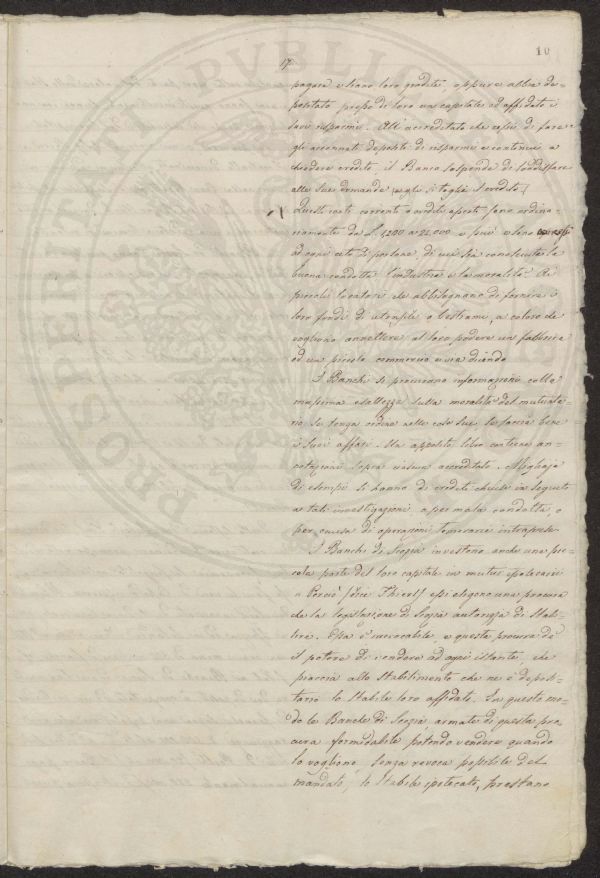 17
10
pagare o siano loro gradite, oppure abbia de=
positato presso di loro un capitale ed affidato i
suoi risparmi. All'accreditato che cessi di fare
gli accennati depositi di risparmi e continui a
chiedere credito, il Banco sospende di soddisfare
alle sue domande, e gli si toglie il credito.
Questi conti correnti a credito aperti sono ordina=
riamente da L. 1,200 a 22,000 e più e sono
ad ogni ceto di persone, di cui sia conosciuta la
buona condotta l'industria e la moralità. Ai
piccoli locatori che abbisognano di fornire i
loro fondi di utensili o bestiame, a coloro che
vogliono annettere al loro podere una fabbrica
od un piccolo commercio e via dicendo
I Banchi si procurano informazioni colla
massima esattezza sulla moralità del mutuata=
rio, se tenga ordine nelle cose sue, se faccia bene
i suoi affari. Un apposito libro contiene an=
notazioni sopra ciascun accreditato. Migliaja
di esempi si hanno di crediti chiusi in seguito
a tali investigazioni o per mala condotta, o
per causa di operazioni temerarie intraprese
I Banchi di Scozia investono anche una pic=
cola parte del loro capitale in mutui ipotecarii
e Perciò (dice Thiers) essi esigono una procura
che la legislazione di Scozia autorizza di stabi=
lire. Essa è irrevocabile, e questa procura dà
il potere di vendere ad ogni istante, che
piaccia allo stabilimento che ne è deposi=
tario lo stabile loro affidato. In questo mo=
do le Banche di Scozia armate di questa pro=
cura formidabile potendo vendere quando
lo vogliono, senza revoca possibile del
mandato, lo stabile ipotecato, prestano
PROSPERITATI PVBLIC